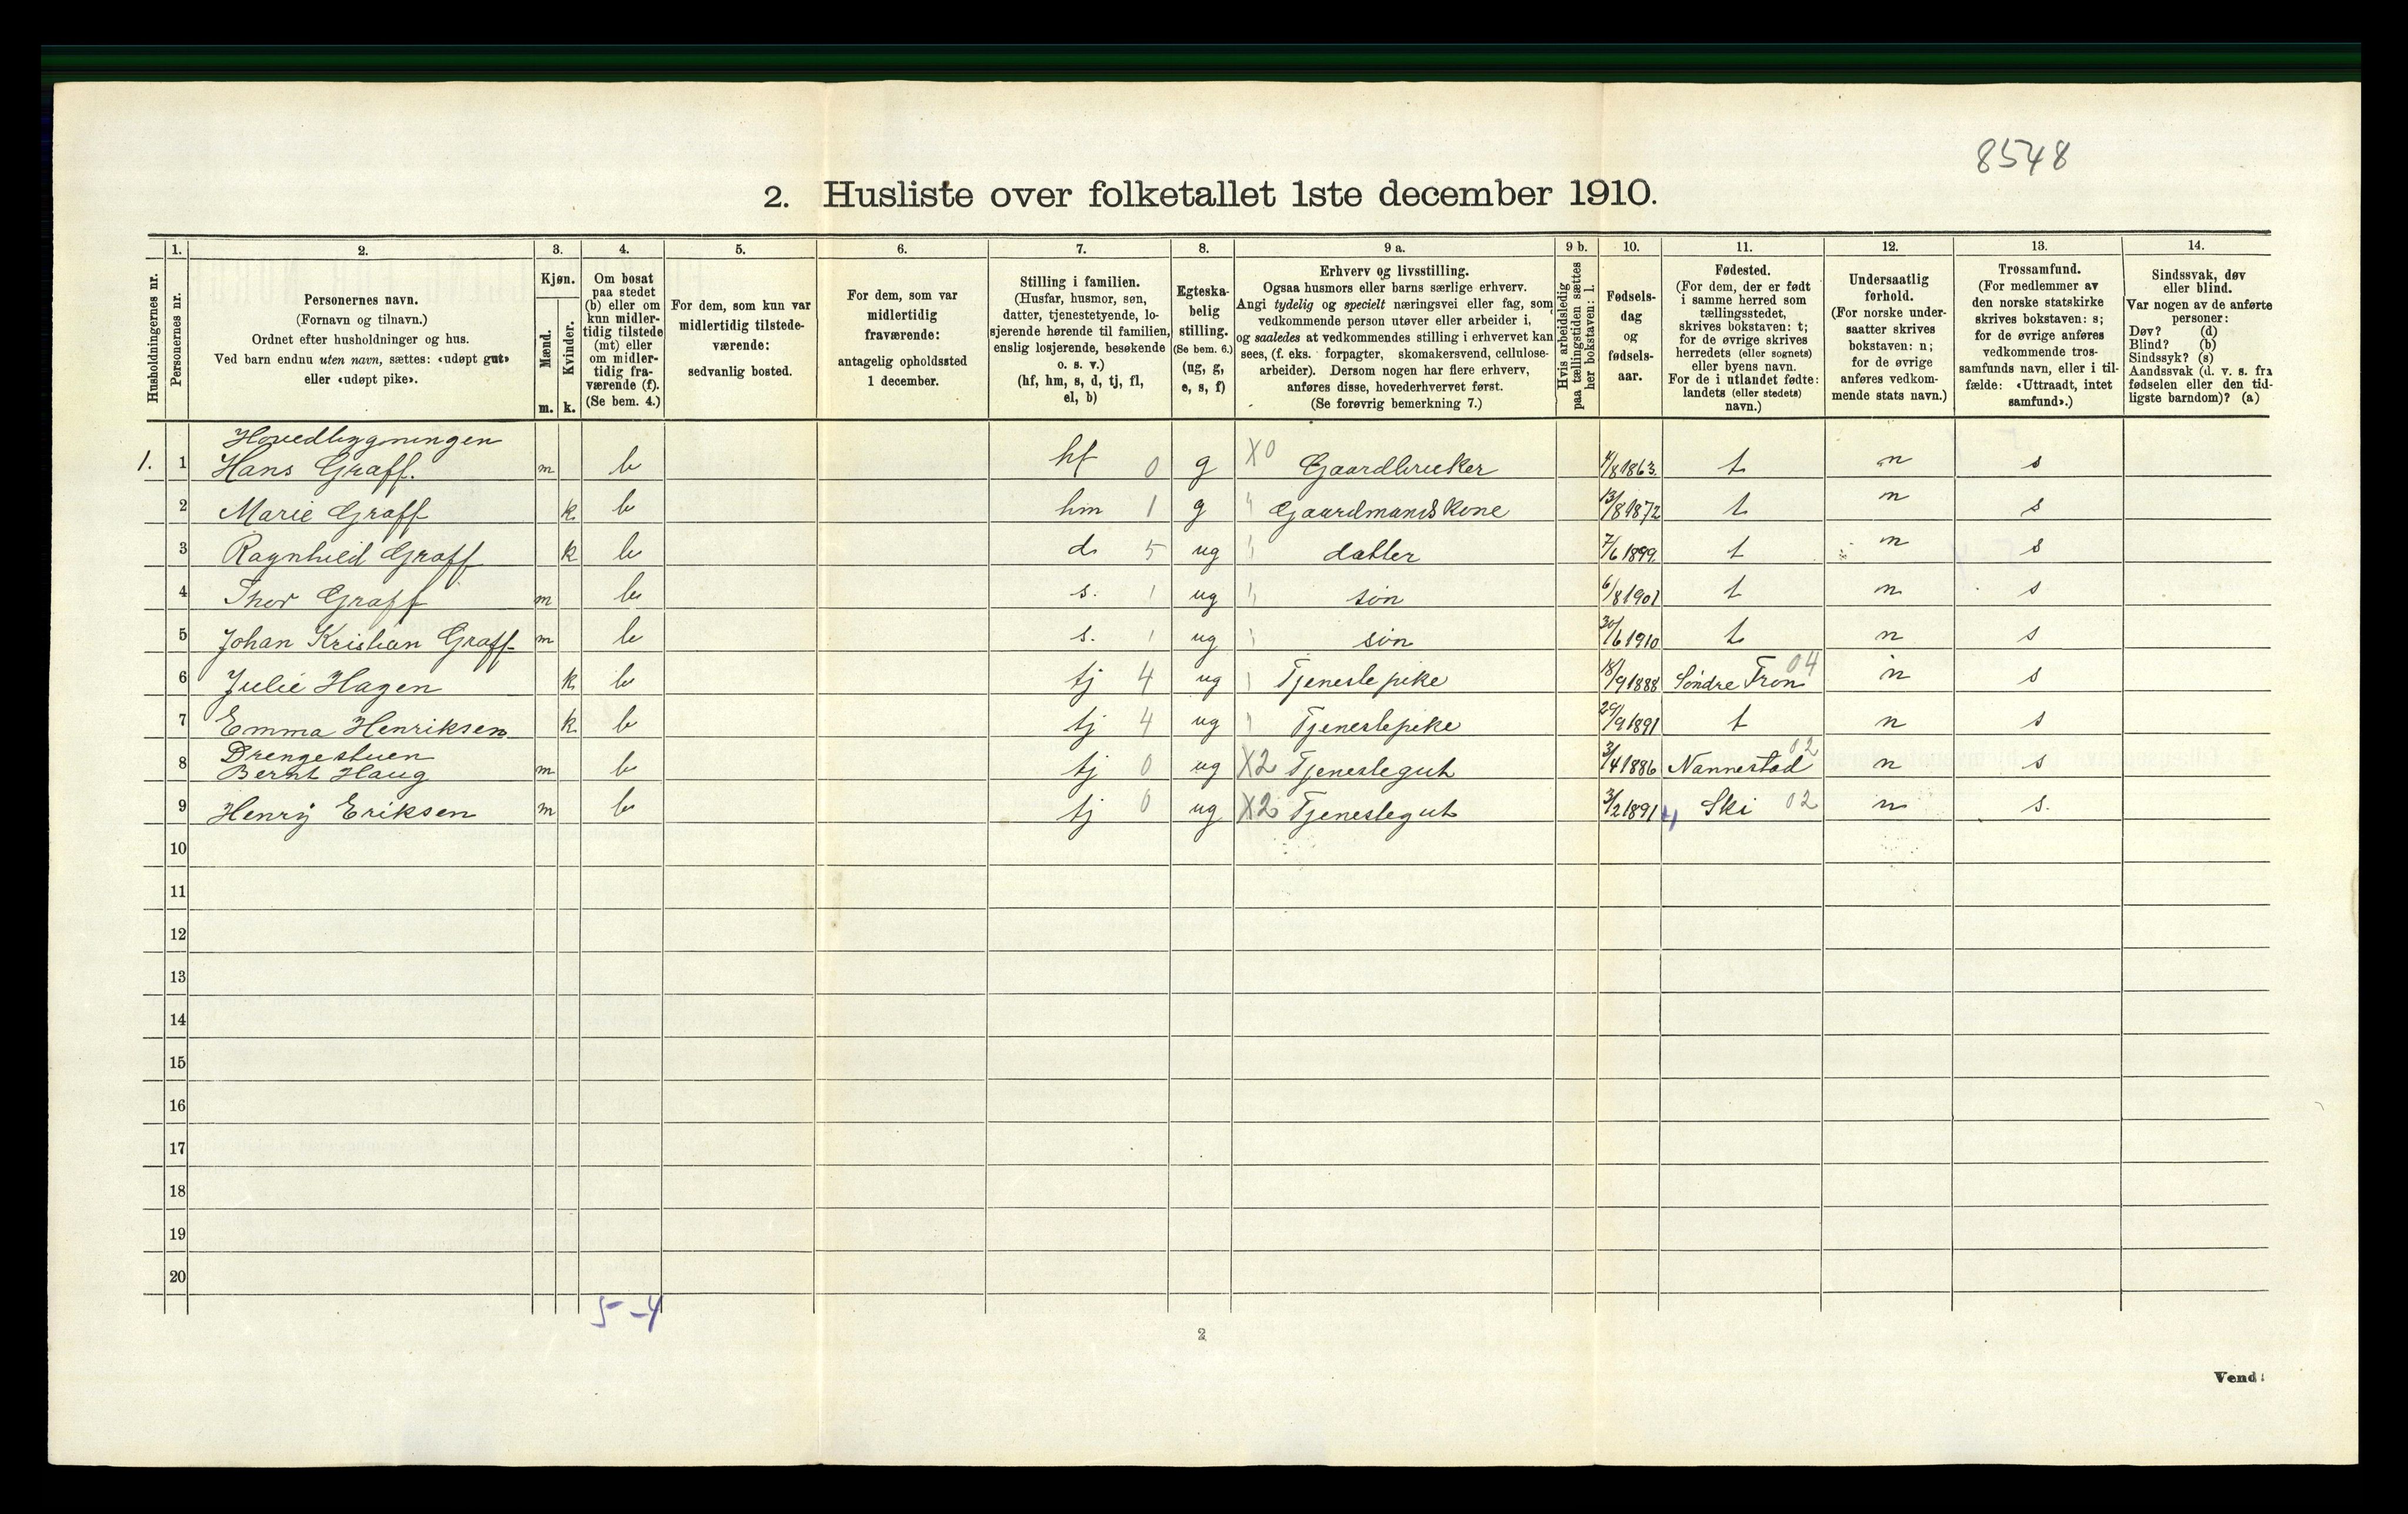 8548
2. Husliste over folketallet 1ste december 1910.
Husholdningernes nr.
1. 2. 3. 4. 5. 6. 7. 8. 9 a. 9 b. 10. 11. 12. 13. 14.
Personernes nr.
Personernes navn.
(Fornavn og tilnavn.)
Ordnet efter husholdninger og hus.
Ved barn endnu uten navn, sættes: «udøpt gut»
eller «udøpt pike».
Kjøn.
Mænd.
Kvinder.
m. k.
Om bosat
paa stedet
(b) eller om
kun midler-
tidig tilstede
(mt) eller
om midler-
tidig fra-
værende (f).
(Se bem. 4.)
For dem, som kun var
midlertidig tilstede-
værende:
sedvanlig bosted.
For dem, som var
midlertidig
fraværende:
antagelig opholdssted
1 december.
Stilling i familien.
(Husfar, husmor, søn,
datter, tjenestetyende, lo-
sjerende hørende til familien,
enslig losjerende, besøkende
o. s. v.)
(hf, hm, s, d, tj, fl,
el, b)
Egteska-
belig
stilling.
(Se bem. 6.)
(ug, g,
e, s, f)
Erhverv og livsstilling.
Ogsaa husmors eller barns særlige erhverv.
Angi tydelig og specielt næringsvei eller fag, som
vedkommende person utøver eller arbeider i,
og saaledes at vedkommendes stilling i erhvervet kan
sees, (f. eks. forpagter, skomakersvend, cellulose-
arbeider). Dersom nogen har flere erhverv,
anføres disse, hovederhvervet først.
(Se forøvrig bemerkning 7.)
Hvis arbeidsledig
paa tællingstiden sættes
her bokstaven: l.
Fødsels-
dag
og
fødsels-
aar.
Fødested.
(For dem, der er født
i samme herred som
tællingsstedet,
skrives bokstaven: t;
for de øvrige skrives
herredets (eller sognets)
eller byens navn.
For de i utlandet fødte:
landets (eller stedets)
navn.)
Undersaatlig
forhold.
(For norske under-
saatter skrives
bokstaven: n;
for de øvrige
anføres vedkom-
mende stats navn.)
Trossamfund.
(For medlemmer av
den norske statskirke
skrives bokstaven: s;
for de øvrige anføres
vedkommende tros-
samfunds navn, eller i til-
fælde: «Uttraadt, intet
samfund».)
Sindssvak, døv
eller blind.
Var nogen av de anførte
personer:
Døv? (d)
Blind? (b)
Sindssyk? (s)
Aandssvak (d. v. s. fra
fødselen eller den tid-
ligste barndom)? (a)
Hovedbygningen
1. 1 Hans Graff. m b hf 0 g X0 Gaardbruker 4/8 1863. t n s
2 Marie Graff k b hm 1 g " Gaardmandskone 13/8 1872 t n s
3 Ragnhild Graff k b d. 5 ug " datter 7/6 1899. t n s
4 Thor Graff m b s. 1 ug " søn 6/8 1901 t n s
5 Johan Kristian Graff m b s. 1 ug " søn 30/6 1910 t n s
6 Julie Hagen k b tj 4 ug " Tjenestepike 18/9 1888 Søndre Fron 04 n s
7 Emma Henriksen k b tj 4 ug " Tjenestepike 29/9 1891 t n s
Drengestuen
8 Bernt Haug m b tj 0 ug X2 Tjenestegut 3/4 1886 Nannestad 02 n s
9 Henry Eriksen m b tj 0 ug X2 Tjenestegut 3/2 1891 Ski 02 n s.
10
11
12
13
14
15
16
17
18
19
20
5-4
2
Vend!